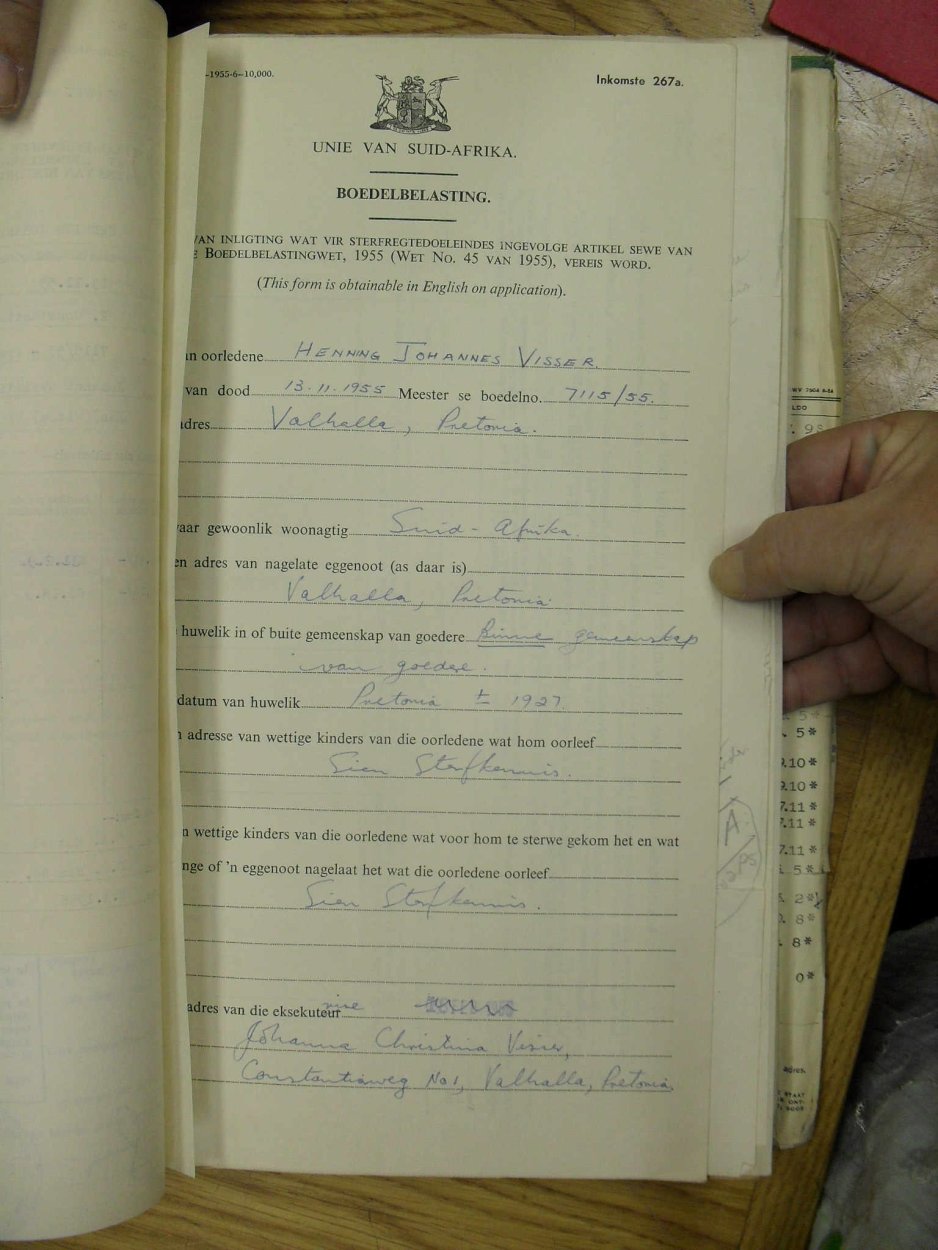 -1955-6-10,000.
Inkomste 267a.
UNIE VAN SUID-AFRIKA.
BOEDELBELASTING.
VAN INLIGTING WAT VIR STERFREGTEDOELEINDES INGEVOLGE ARTIKEL SEWE VAN
E BOEDELBELASTINGWET, 1955 (WET NO. 45 VAN 1955), VEREIS WORD.
(This form is obtainable in English on application).
an oorledene HENNING JOHANNES VISSER.
van dood 13.11.1955 Meester se boedelno. 7115/55.
adres Valhalla, Pretoria.
aar gewoonlik woonagtig Suid-Afrika.
en adres van nagelate eggenoot (as daar is)
Valhalla, Pretoria
huwelik in of buite gemeenskap van goedere Binne gemeenskap
van goedere.
datum van huwelik Pretoria ± 1927.
n adresse van wettige kinders van die oorledene wat hom oorleef
Sien Sterfkennis.
n wettige kinders van die oorledene wat voor hom te sterwe gekom het en wat
nge of 'n eggenoot nagelaat het wat die oorledene oorleef
Sien Sterfkennis.
adres van die eksekuteur
Johanna Christina Visser,
Constantiaweg No 1, Valhalla, Pretoria.
WV 7504 8-54
. 95
. 5*
. 5*
9.10*
9.10*
7.11*
7.11*
7.11*
. 5*
. 2*
. 8*
. 8*
0*